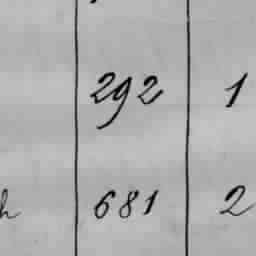 292 1
h 681 2